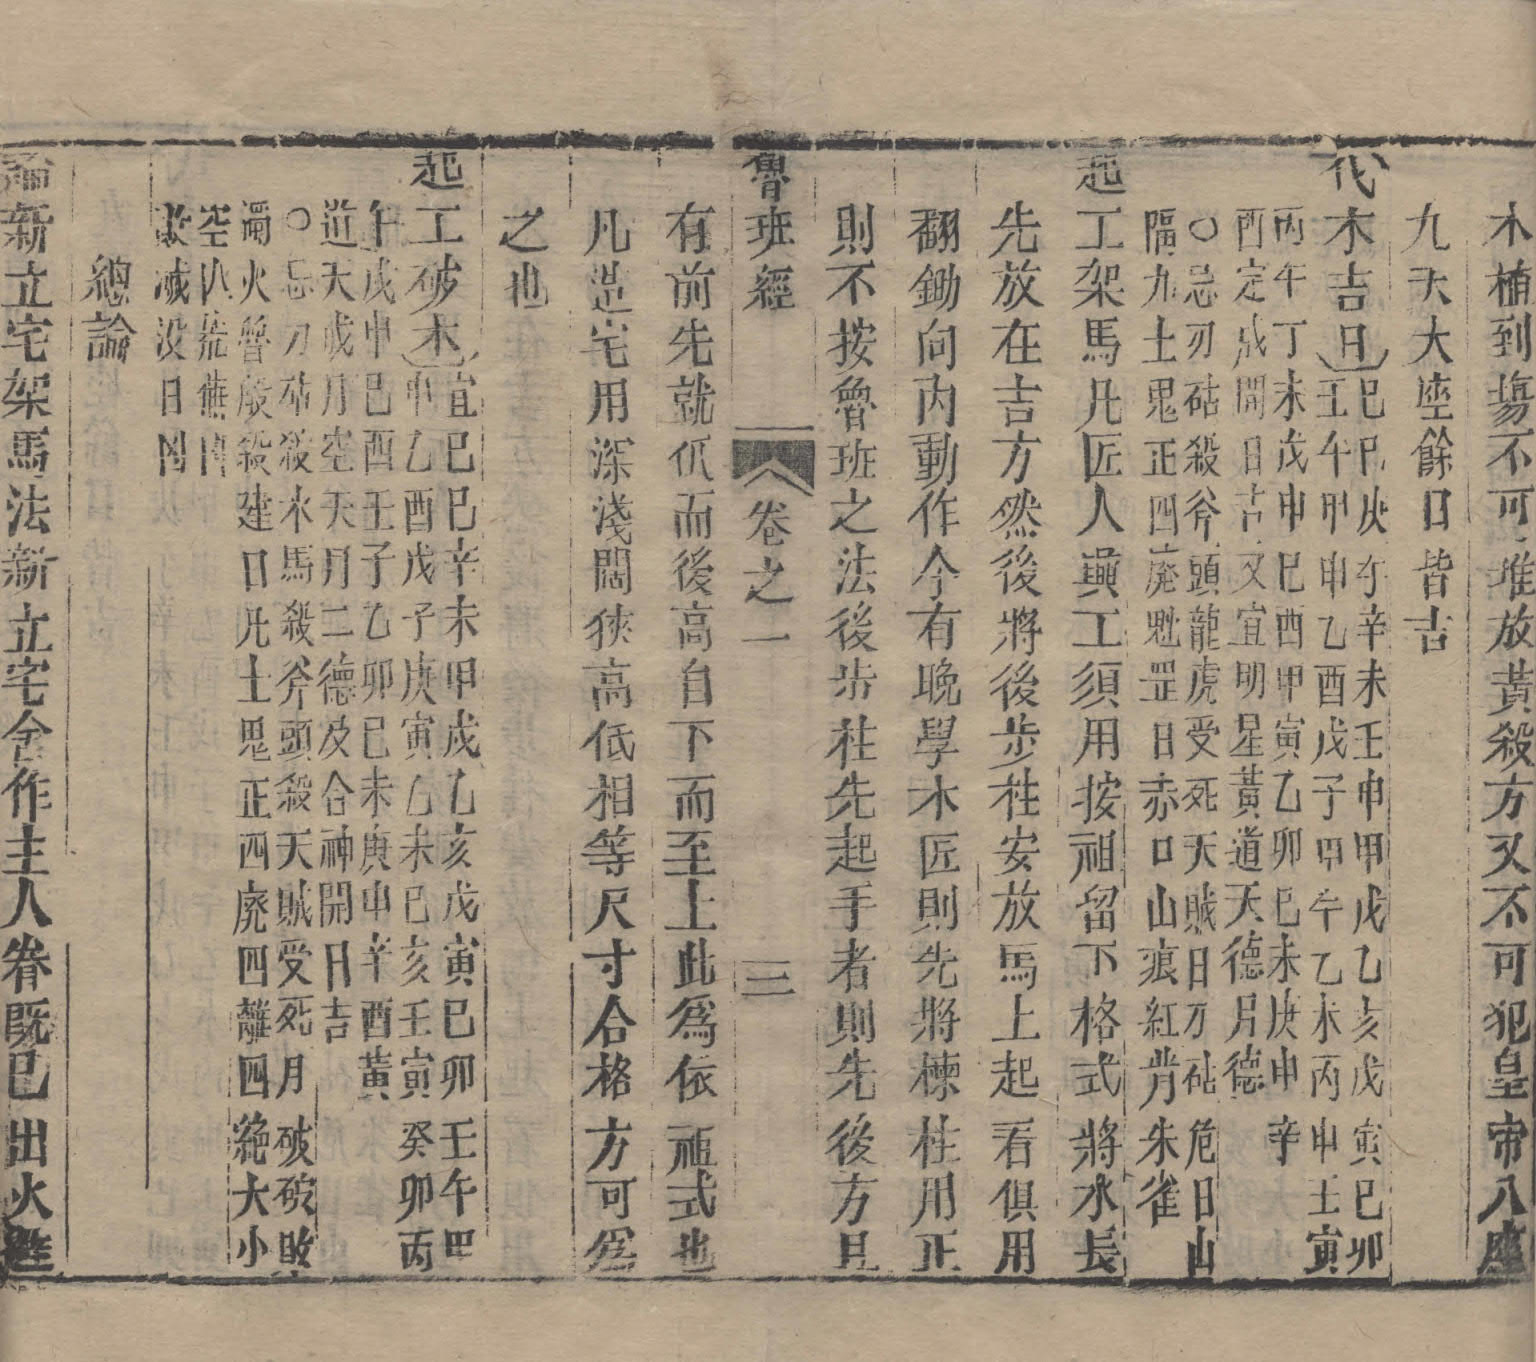 木植到塲不可堆放黃殺方又不可犯皇帝八座
九天大座餘日皆吉
伐木吉日己巳庚午辛未壬申甲戌乙亥戊寅己卯
壬午甲申乙酉戊子甲午乙未丙申壬寅
丙午丁未戊申己酉甲寅乙卯己未庚申辛
酉定成開日吉又宜明星黃道天德月德
○忌刃砧殺斧頭龍虎受死天賊日刃砧危日山
隔九土鬼正四廢魁罡日赤口山痕紅觜朱雀
起工架馬凡匠人興工須用按祖留下格式將水長
先放在吉方然後將後步柱安放馬上起看俱用
翻鋤向內動作今有晚學木匠則先將棟柱用正
則不按魯班之法後步柱先起手者則先後方且
魯班經 卷之一 三
有前先就低而後高自下而至上此為依祖式也
凡造宅用深淺闊狹高低相等尺寸合格方可為
之也
起工破木宜己巳辛未甲戌乙亥戊寅己卯壬午
甲申乙酉戊子庚寅乙未己亥壬寅癸卯丙
午戊申己酉壬子乙卯己未庚申辛酉黃
道天成月空天月二德及合神開日吉
○忌刀砧殺木馬殺斧頭殺天賊受死月破破敗
獨火魯般殺建日凡土鬼正四廢四離四絕大小
空亡荒蕪凶
敗滅沒日凶
總論
論新立宅架馬法新立宅舍作主人眷既已出火避